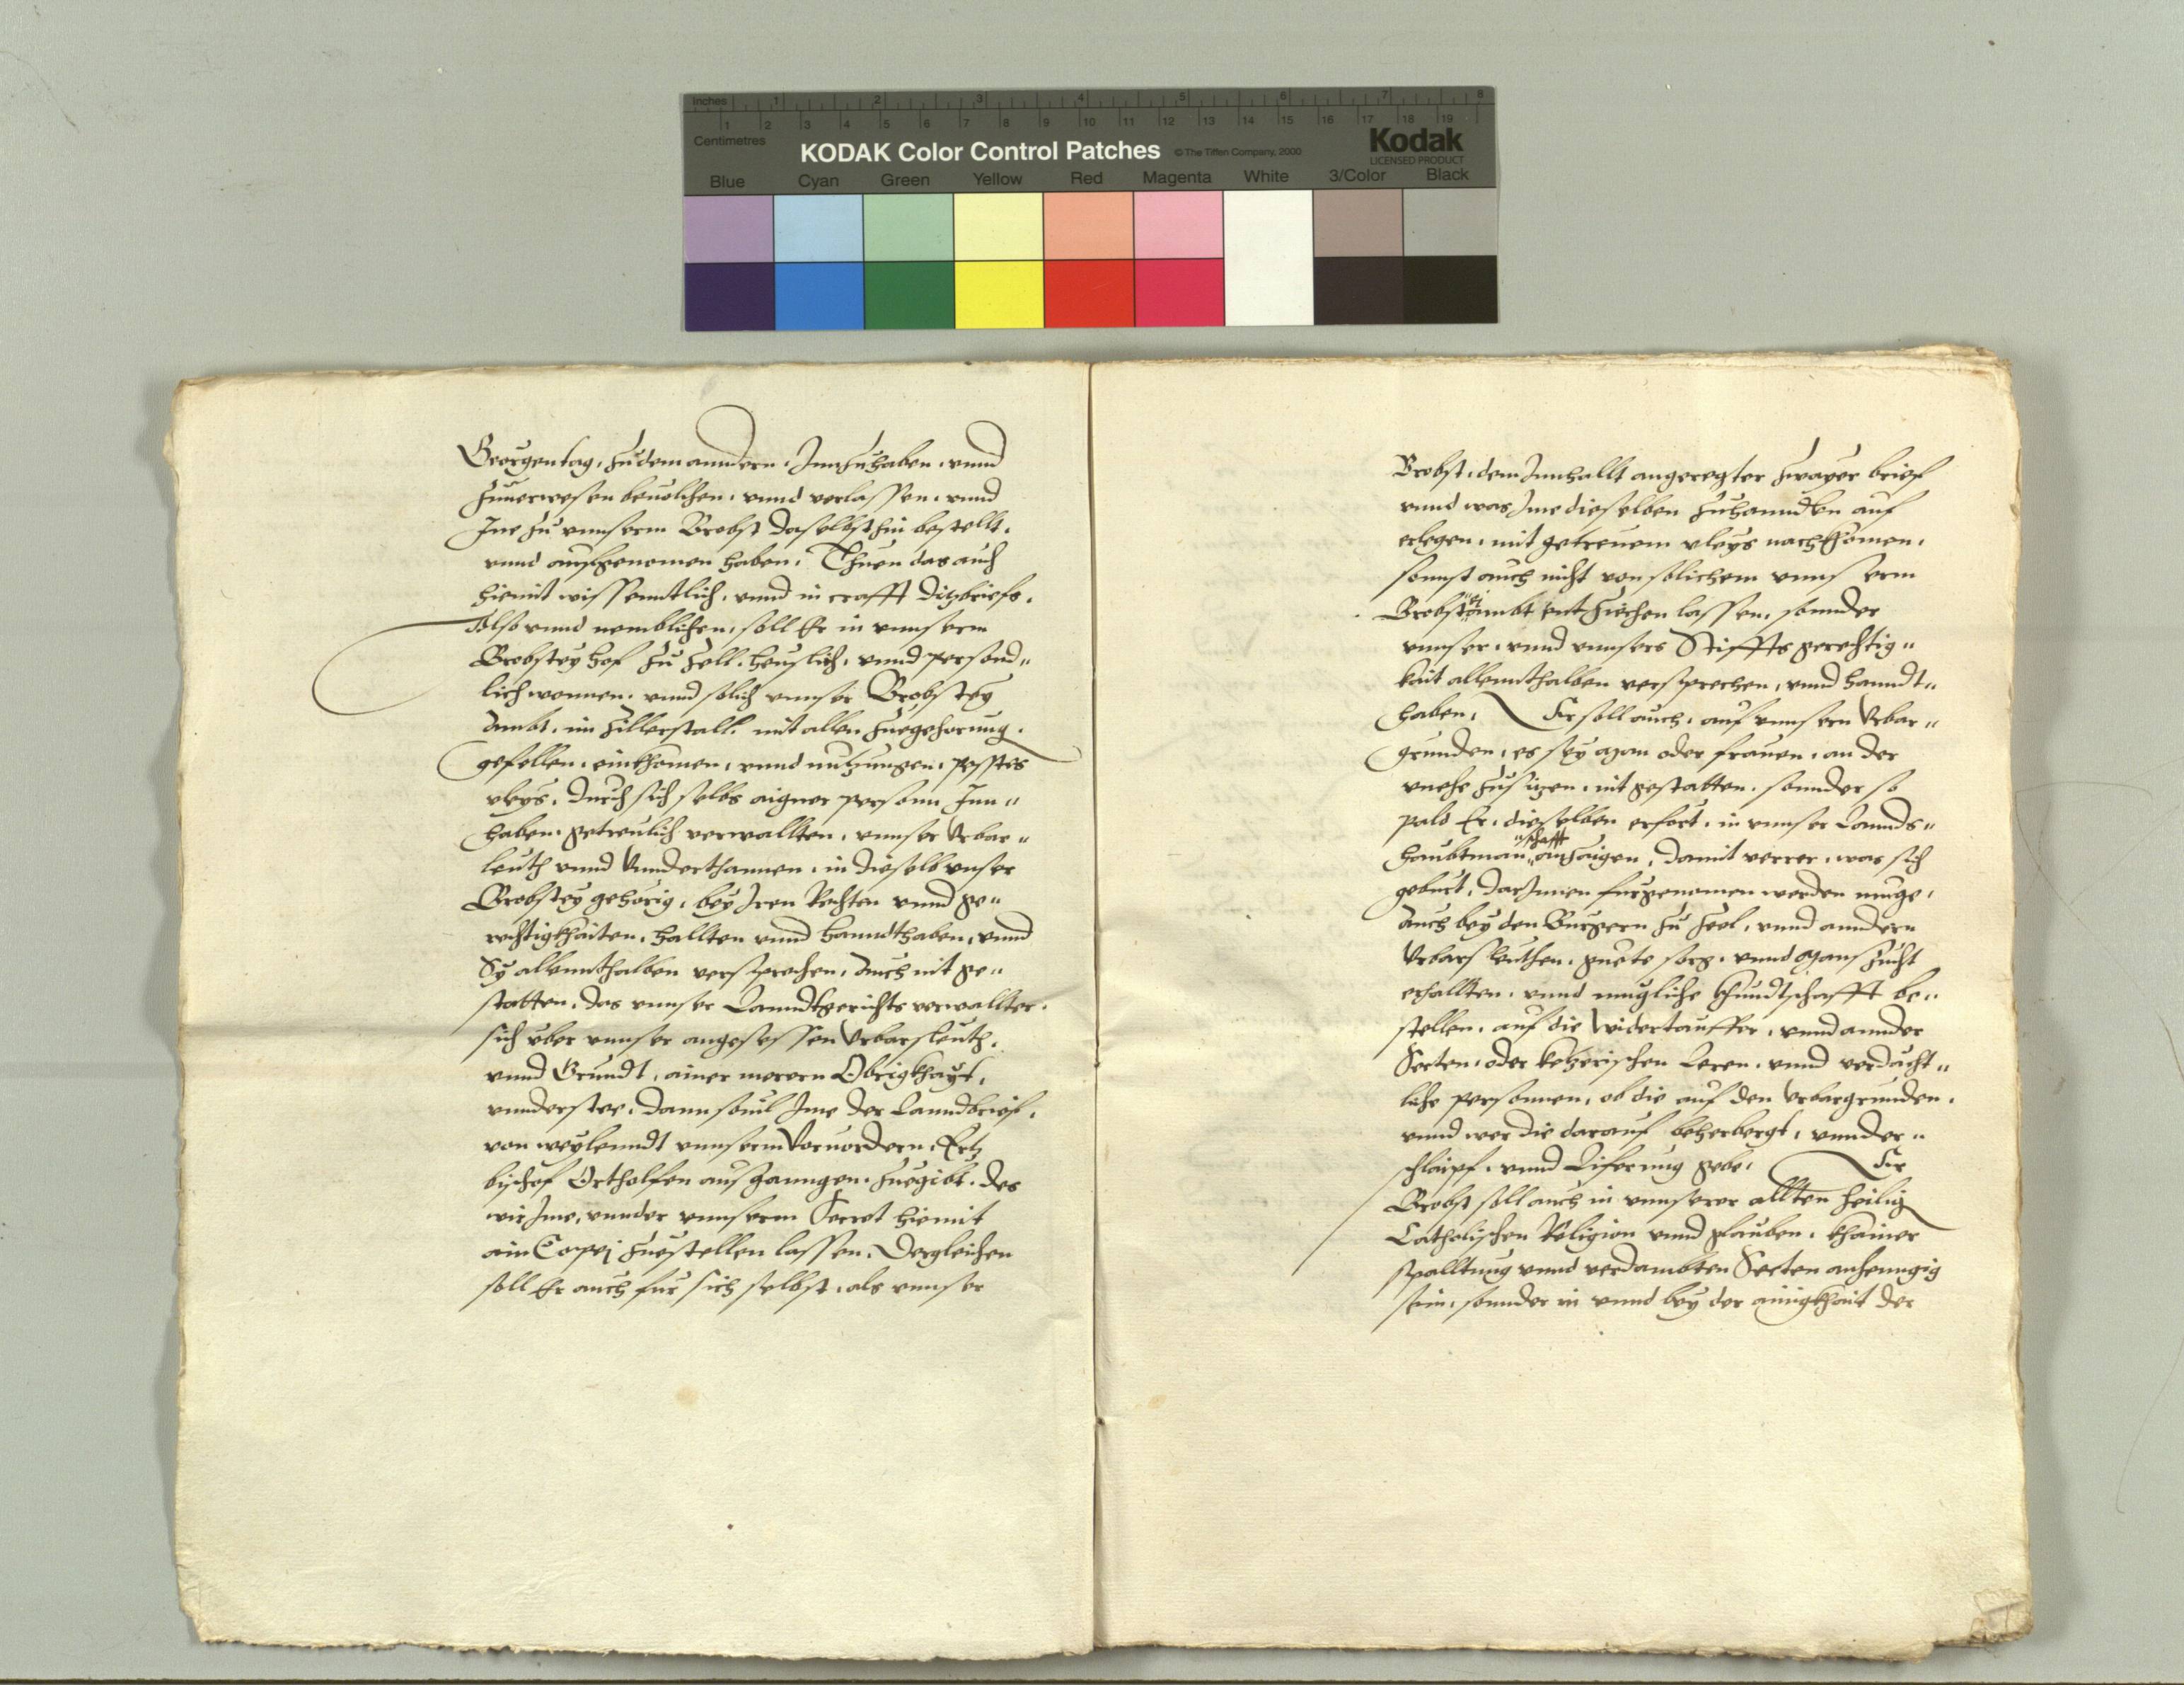 Inches 1 2 3 4 5 6 7 8
1 2 3 4 5 6 7 8 9 10 11 12 13 14 15 16 17 18 19
Centimetres
KODAK Color Control Patches © The Tiffen Company, 2000
Kodak
LICENSED PRODUCT
Blue Cyan Green Yellow Red Magenta White 3/Color Black
Georgentag, zu dem anndern. Innzuhaben. vnnd
Zuuerwesen beuolchen. vnnd verlassen. vnnd
Ine zu vnnserm Brobst daselbsthin bestellt.
vnnd aufgenomen haben. Thuen das auch
hiemit wissenntlich. vnnd in crafft ditzbriefs.
Also vnnd nemblichen, soll Er in vnnserm
Brobstey hof zu Zell. heuslich. vnnd personnd„
lich wonnen. vnnd solich vnnser Brobstey
Ambt. im Zillerstall. mit allen Zuegehorung.
gefellen. einkhomen, vnnd nutzungen. pesstes
vleys. durch sich selbs aigner personn Inn„
haben. getreulich verwallten. vnnser Vrbar„
leuth vnnd Vnnderthannen. in dieselb vnser
Brobstey gehörig, bey Iren Rechten vnnd ge„
rechtigkhaiten. hallten vnnd hanndthaben, vnnd
Sy allennthalben versprechen. Auch nit ge„
statten. das vnnser Lanndtgerichts verwallter.
sich vber vnnser angesessen Vrbarsleuth.
vnnd Grundt, ainer merern Obrigkhayt,
vnnderstee. dann souil Ime der Lanndbrief.
von weylenndt vnnserm Voruordern. Ertz
bischof Ortholfen ausganngen. zuegibt. des
wir Ime, vnnder vnnserm Secret hiemit
ain Copej zuestellen lassen. Dergleichen
soll Er auch für sich selbst. als vnnser
Brobst. dem Innhallt angeregter zwayer brief
vnnd was Ime dieselben zuhanndlen auf
erlegen. mit getreuem vleys nachkhomen.
sonnst auch nicht von solichem vnnserm
Brobstej Ambt entziechen lassen, sonnder
vnnser. vnnd vnnsers Stiffts gerechtig„
kait allennthalben versprechen, vnnd hanndt„
haben. Er soll auch. auf vnnsern Vrbar„
grunden, es sey Man oder frauen. an der
vnehe zusitzen. nit gestatten. sonnder so
pald Er. dieselben erfert. in vnnser Lannds„
haubtman„schafft anzaigen, damit verrer. was sich
geburt. darInnen furgenomen werden muge.
Auch bey den Burgern zu Zeel, vnnd anndern
Vrbarsleuthen. guete sorg. vnnd Manszucht
erhallten. vnnd mugliche khundtschafft be„
stellen. auf die Widertauffer. vnnd annder
Secten. oder ketzerischen Leren. vnnd verdächt„
liche personnen, ob die auf den Vrbargrunden.
vnnd wer die darauf beherbergt, vnnder„
schlaipf. vnnd Liferung gebe. Er
Brobst soll auch in vnnserer allten heilig
Catholischen Religion vnnd glauben. khainer
spalltung vnnd verdambten Secten anhenngig
sein. sonnder in vnnd bey der ainigkhait der